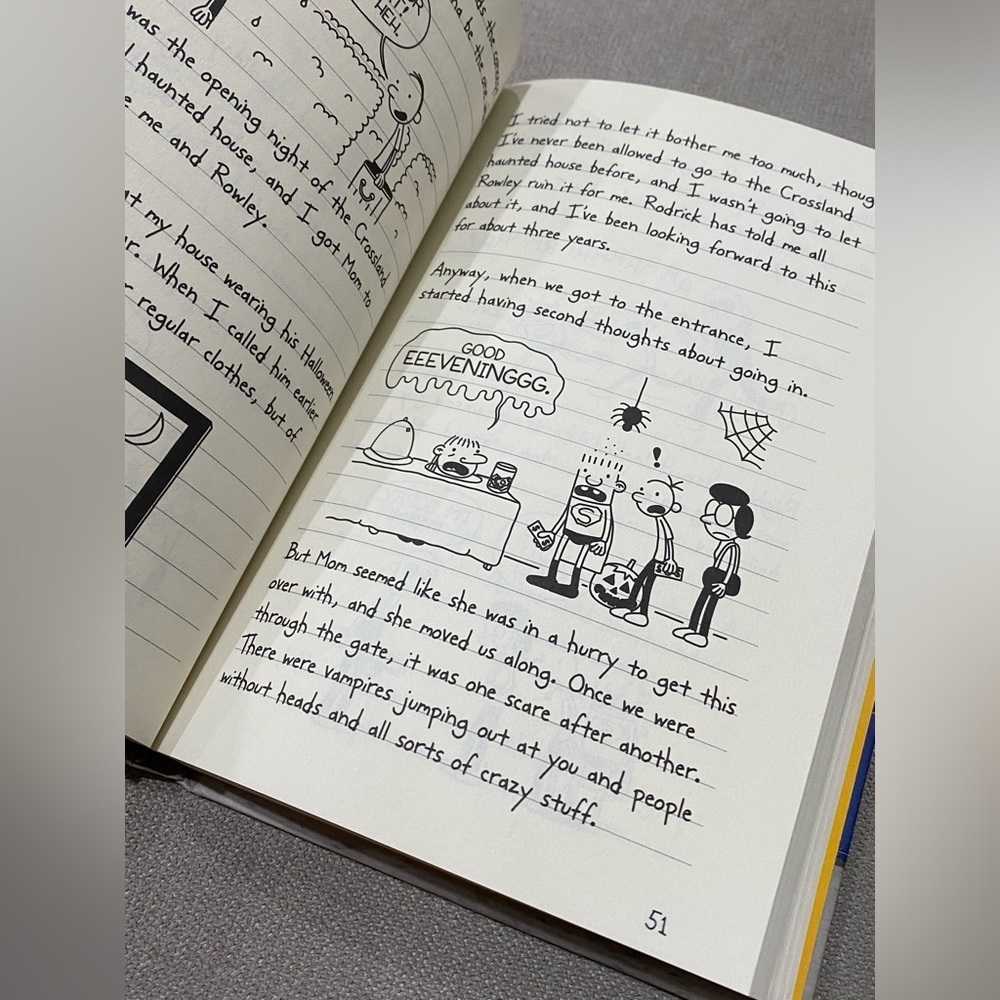 HEH,
was the opening night of the Crossland
haunted house, and I got Mom to
me and Rowley.
at my house wearing his Halloween
When I called him earlier
regular clothes, but of
I tried not to let it bother me too much, thoug
I've never been allowed to go to the Crossland
haunted house before, and I wasn't going to let
Rowley ruin it for me. Rodrick has told me all
about it, and I've been looking forward to this
for about three years.
Anyway, when we got to the entrance, I
started having second thoughts about going in.
GOOD
EEEVENINGGG.
!
S
But Mom seemed like she was in a hurry to get this
over with, and she moved us along. Once we were
through the gate, it was one scare after another.
There were vampires jumping out at you and people
without heads and all sorts of crazy stuff.
51